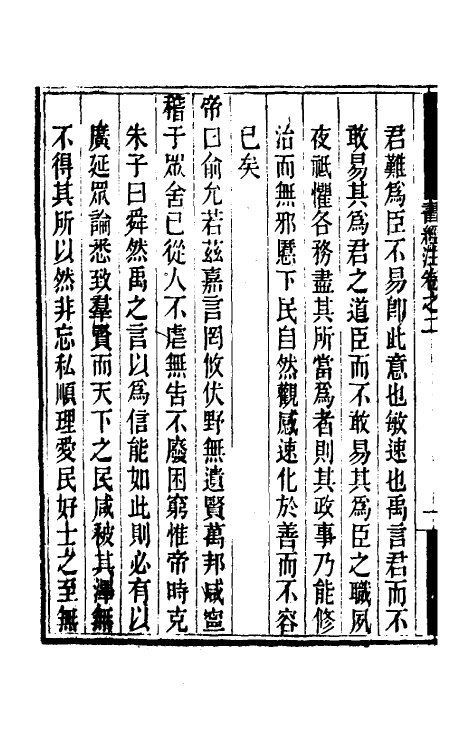 君難爲臣不易卽此意也敏速也禹言君而不
敢易其爲君之道臣而不敢易其爲臣之職夙
夜祇懼各務盡其所當爲者則其政事乃能修
治而無邪慝下民自然觀感速化於善而不容
已矣
帝曰俞允若茲嘉言罔攸伏野無遺賢萬邦咸寧
稽于眾舍已從人不虐無告不廢困窮惟帝時克
朱子曰舜然禹之言以爲信能如此則必有以
廣延眾論悉致羣賢而天下之民咸被其澤無
不得其所以然非忘私順理愛民好士之至無
書經注卷之二
一